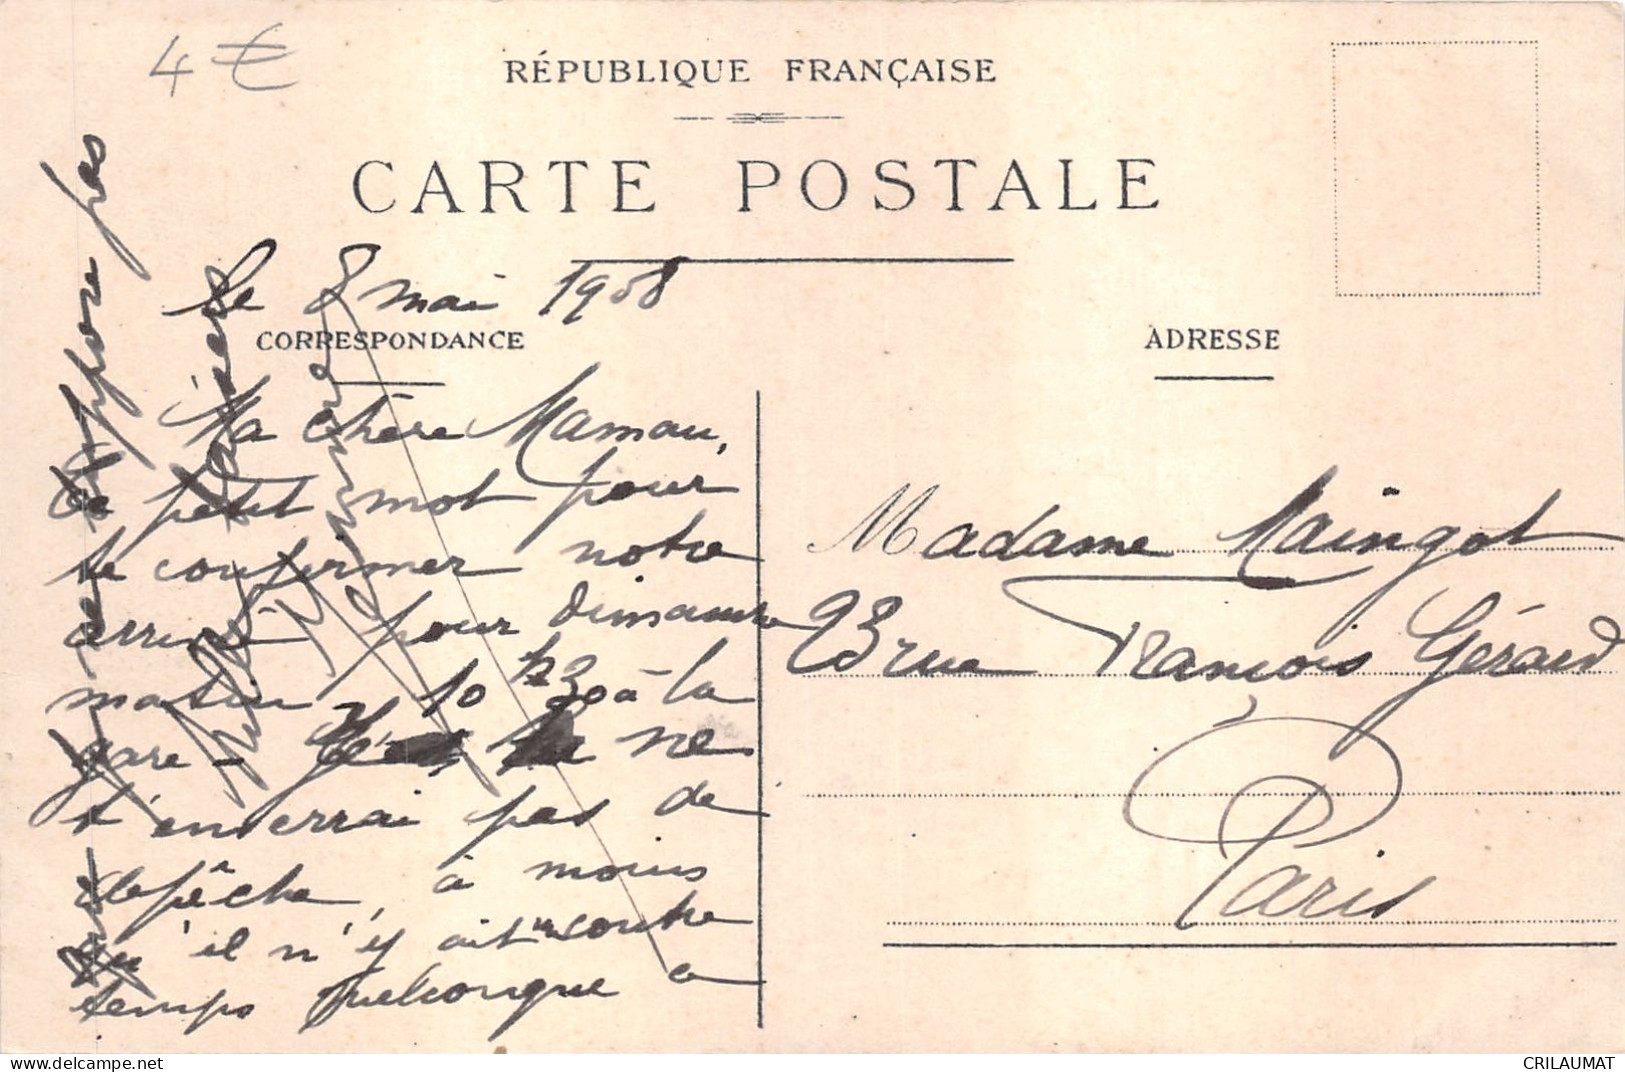 4 €
RÉPUBLIQUE FRANÇAISE
CARTE POSTALE
le 8 mai 1908
CORRESPONDANCE
Ma chère Maman,
Ce petit mot pour
te confirmer notre
arrivé pour dimanche
matin 10 h 30 à la
gare - Je ne
t'enverrai pas de
depêche, à moins
qu'il n'y ait un contre
temps quelconque ce
suppose pas
baisers
Germaine
ADRESSE
Madame Maingot
23 rue François Gérard
Paris
CRILAUMAT